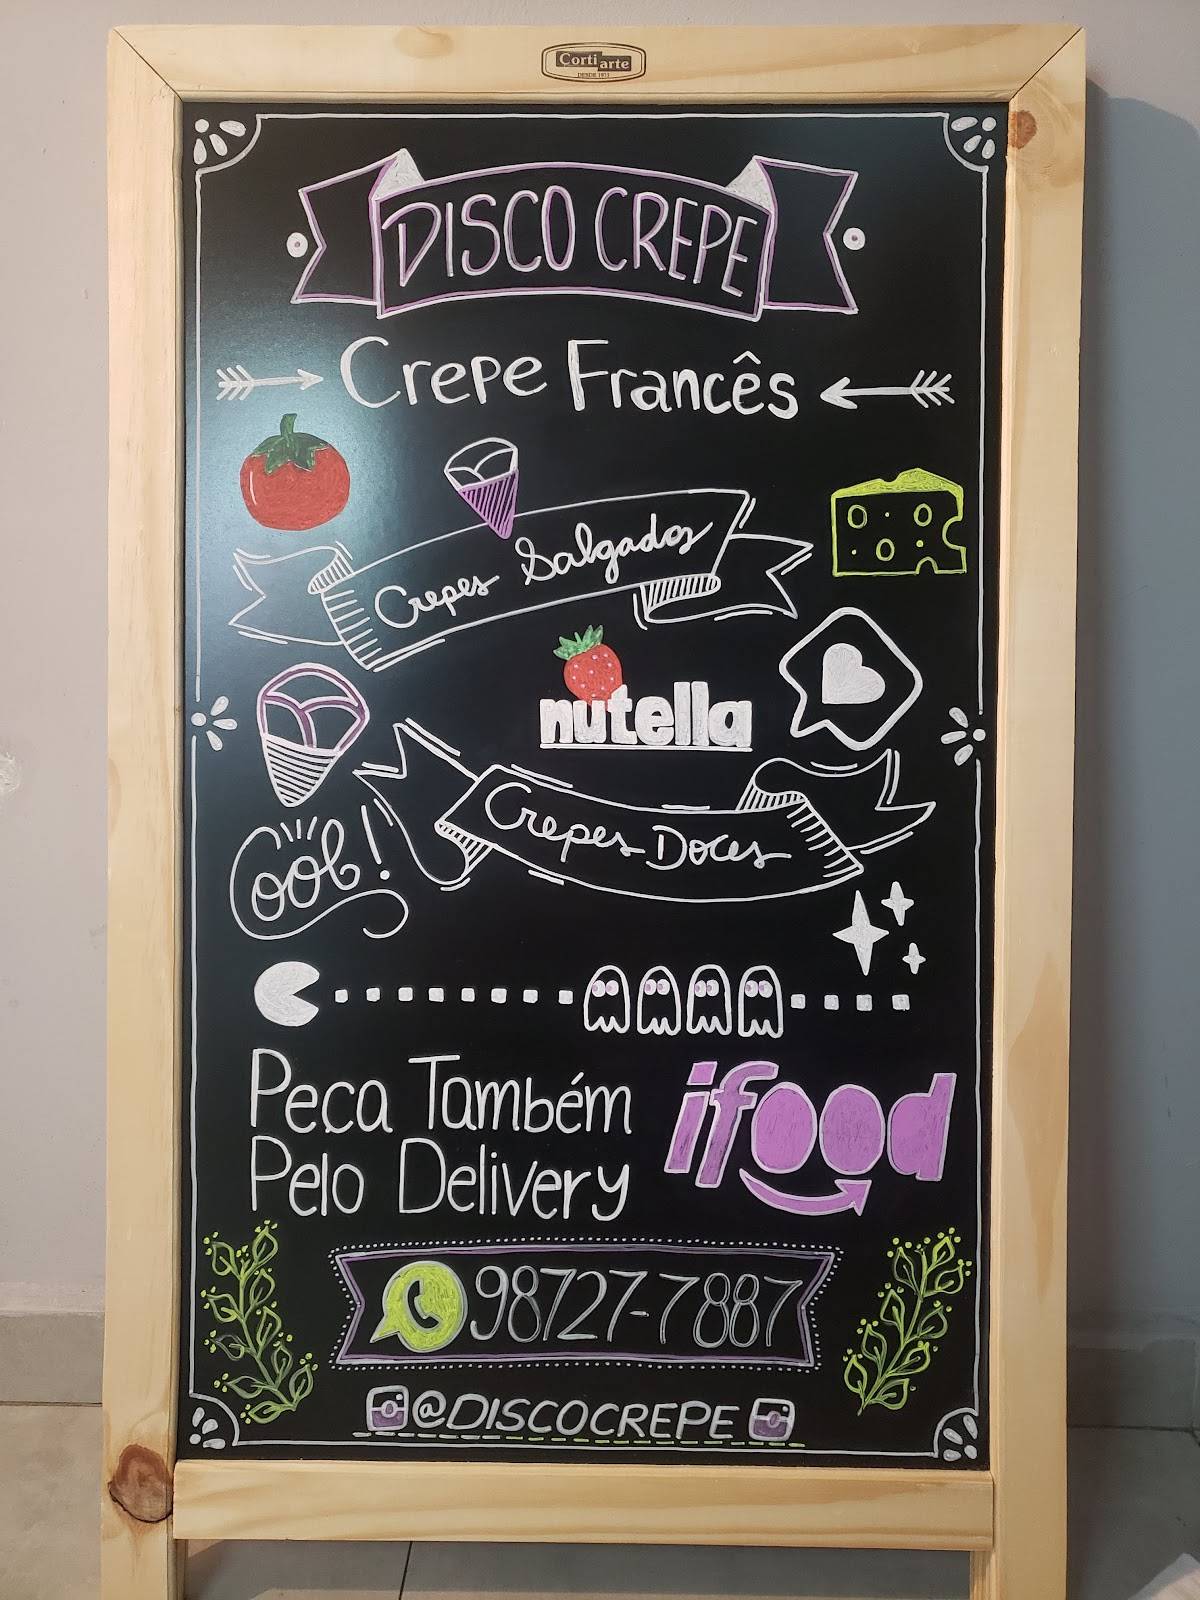 Corti arte
DESDE 1971
DISCO CREPE
Crepe Francês
Crepes Salgados
nutella
Crepes Doces
Cool!
Peça Também
Pelo Delivery
ifood
98727-7887
@DISCOCREPE